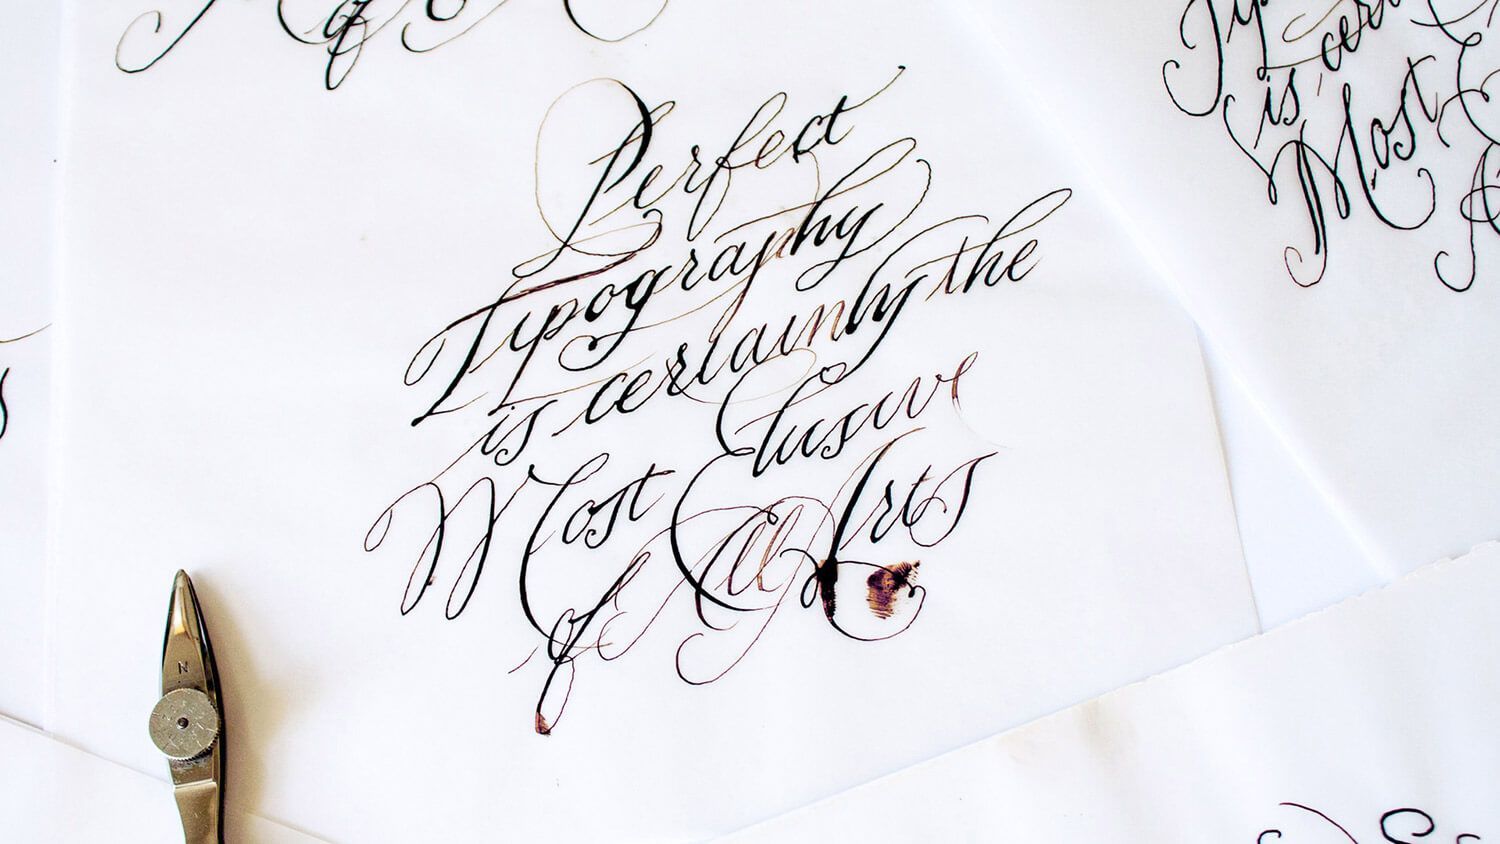 Perfect
Typography
is certainly the
Most Elusive
of All Arts
Typ
is cer
Most
A
N